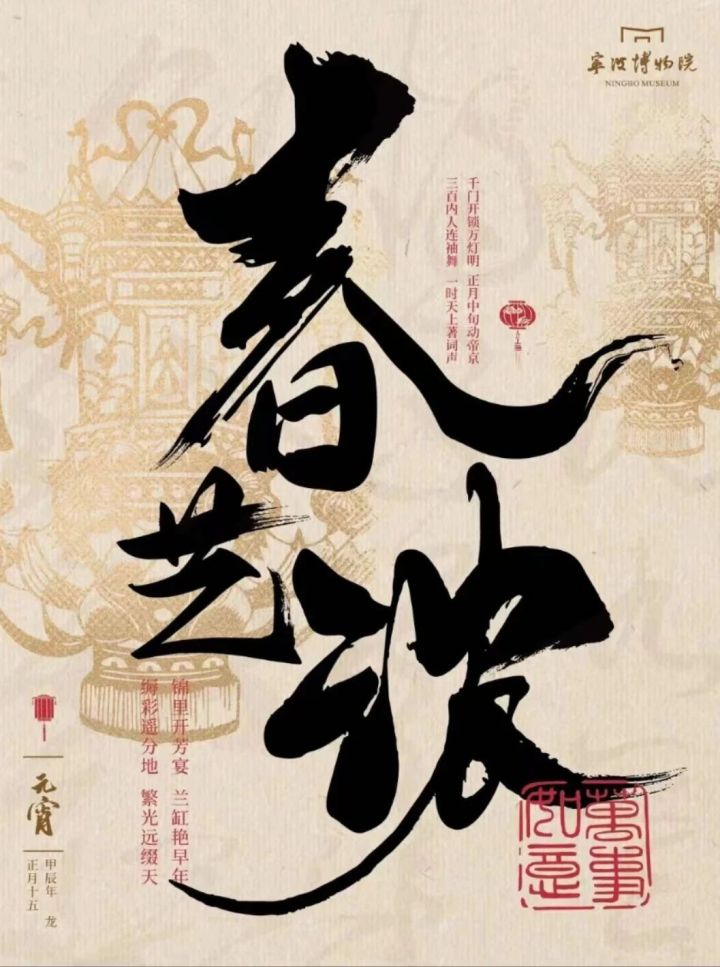 寧波博物院
NINGBO MUSEUM
千门开锁万灯明 正月中旬动帝京
三百内人连袖舞 一时天上著词声
春
艺浓
锦里开芳宴 兰缸艳早年
缛彩遥分地 繁光远缀天
元宵
甲辰年 龙
正月十五
萬事
如意